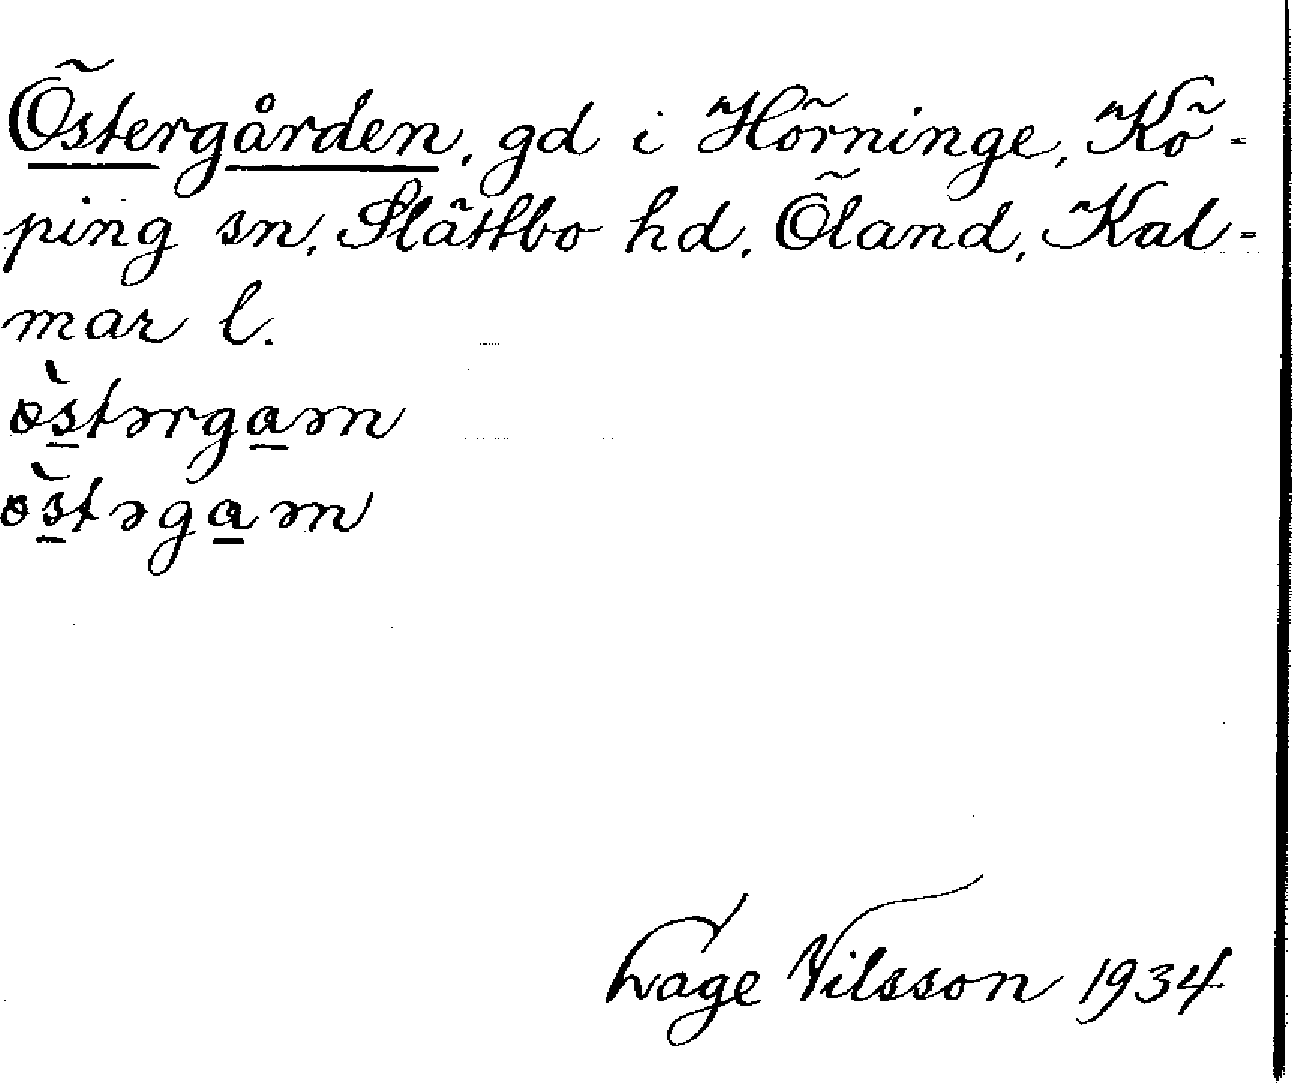 Östergården, gd i Hörninge, Kö-
ping sn, Slättbo hd, Öland, Kal-
mar l.
ö̀stərgaən
ö̀stəgaən
Lage Nilsson 1934